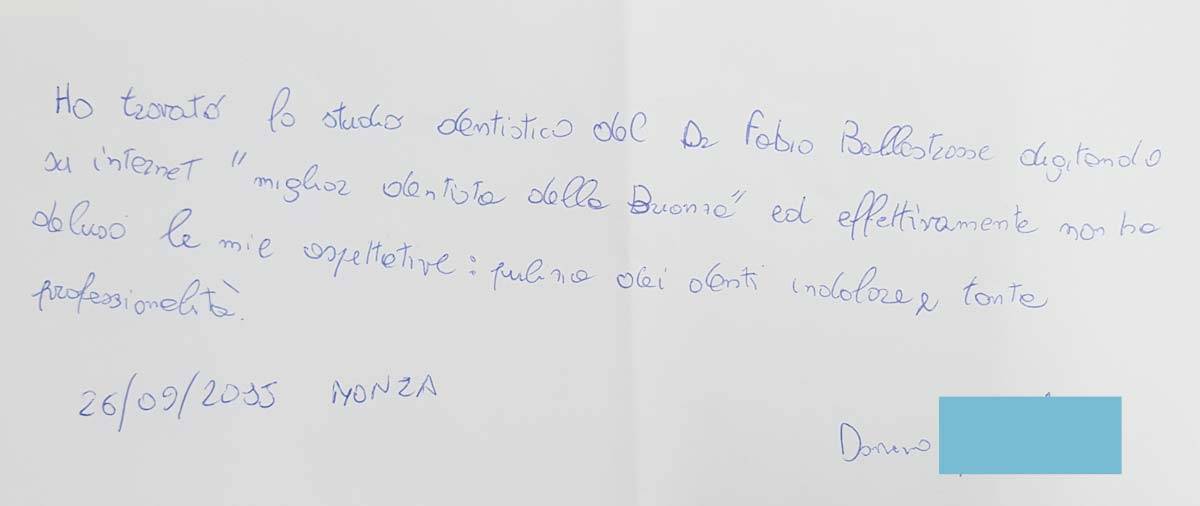 Ho trovato lo studio dentistico del Dr Fabio Ballestrasse digitando
su internet "miglior dentista della Brianza" ed effettivamente non ha
deluso le mie aspettative: pulizia dei denti indolore e tanta
professionalità.
26/09/2015 MONZA